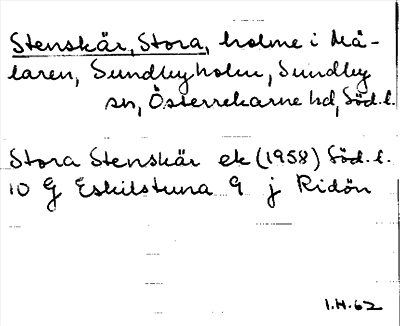 Stenskär, Stora, holme i Mä-
laren, Sundbyholm, Sundby
sn, Österrekarne hd, Söd.l.
Stora Stenskär ek (1958) Söd.l.
10 G Eskilstuna 9 j Ridön
I.H.62